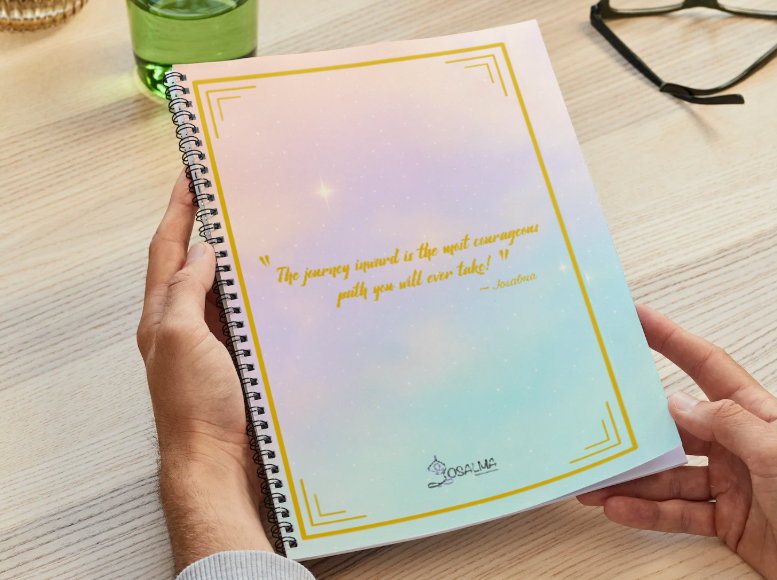 " The journey inward is the most courageous
path you will ever take! "
~ Josalma
JOSALMA